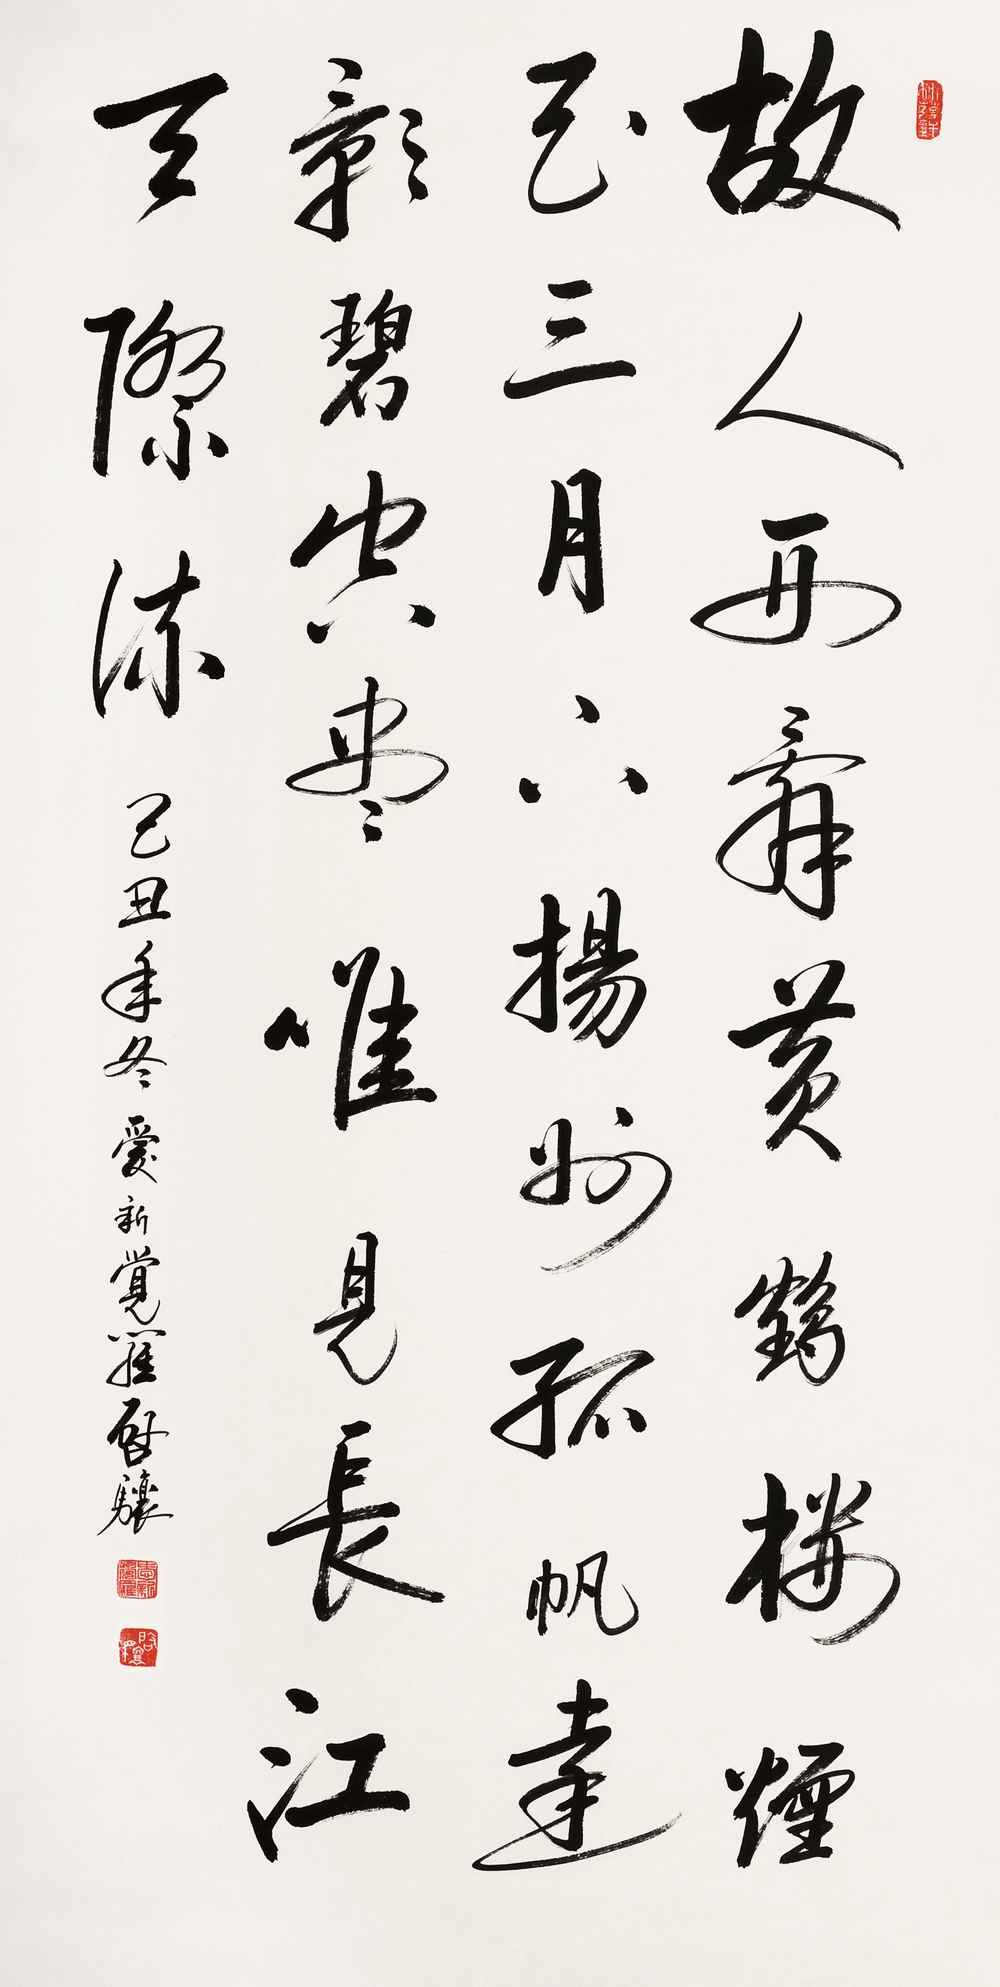 故人西辭黃鶴樓煙
花三月下揚州孤帆遠
影碧空盡唯見長江
天際流
己丑年冬愛新覺羅啟驤